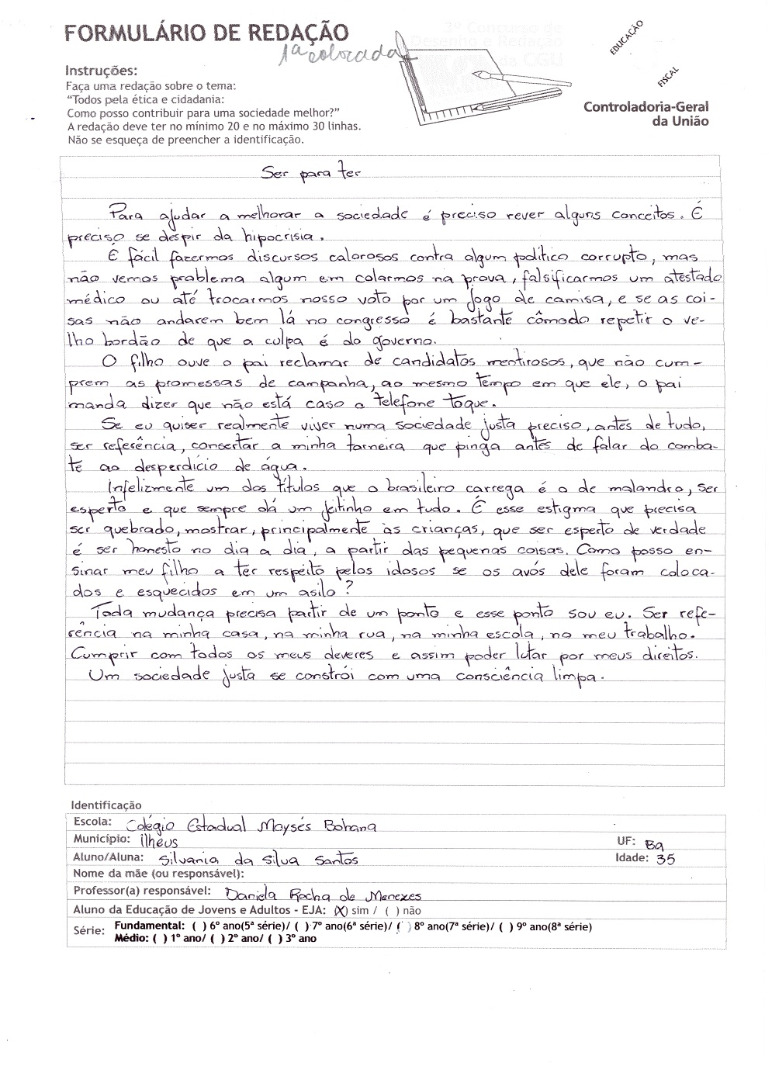 FORMULÁRIO DE REDAÇÃO
1ª colocada
3º Concurso de
Desenho e Redação
da CGU
EDUCAÇÃO
FISCAL
Controladoria-Geral
da União
Instruções:
Faça uma redação sobre o tema:
"Todos pela ética e cidadania:
Como posso contribuir para uma sociedade melhor?"
A redação deve ter no mínimo 20 e no máximo 30 linhas.
Não se esqueça de preencher a identificação.
Ser para ter
Para ajudar a melhorar a sociedade é preciso rever alguns conceitos. É
preciso se despir da hipocrisia.
É fácil fazermos discursos calorosos contra algum político corrupto, mas
não vemos problema algum em colarmos na prova, falsificarmos um atestado
médico ou até trocarmos nosso voto por um jogo de camisa, e se as coi-
sas não andarem bem lá no congresso é bastante cômodo repetir o ve-
lho bordão de que a culpa é do governo.
O filho ouve o pai reclamar de candidatos mentirosos, que não cum-
prem as promessas de campanha, ao mesmo tempo em que ele, o pai
manda dizer que não está caso o telefone toque.
Se eu quiser realmente viver numa sociedade justa preciso, antes de tudo,
ser referência, consertar a minha torneira que pinga antes de falar do comba-
te ao desperdício de água.
Infelizmente um dos títulos que o brasileiro carrega é o de malandro, ser
esperto e que sempre dá um jeitinho em tudo. É esse estigma que precisa
ser quebrado, mostrar, principalmente às crianças, que ser esperto de verdade
é ser honesto no dia a dia, a partir das pequenas coisas. Como posso en-
sinar meu filho a ter respeito pelos idosos se os avós dele foram coloca-
dos e esquecidos em um asilo?
Toda mudança precisa partir de um ponto e esse ponto sou eu. Ser refe-
rência na minha casa, na minha rua, na minha escola, no meu trabalho.
Cumprir com todos os meus deveres e assim poder lutar por meus direitos.
Um sociedade justa se constrói com uma consciência limpa.
Identificação
Escola: Colégio Estadual Moysés Bohana
Município: ilhéus UF: Ba
Aluno/Aluna: Silvania da Silva Santos Idade: 35
Nome da mãe (ou responsável):
Professor(a) responsável: Daniela Rocha de Menezes
Aluno da Educação de Jovens e Adultos - EJA: (X) sim / ( ) não
Série: Fundamental: ( ) 6º ano(5ª série)/ ( ) 7º ano(6ª série)/ ( ) 8º ano(7ª série)/ ( ) 9º ano(8ª série)
Médio: ( ) 1º ano/ ( ) 2º ano/ ( ) 3º ano